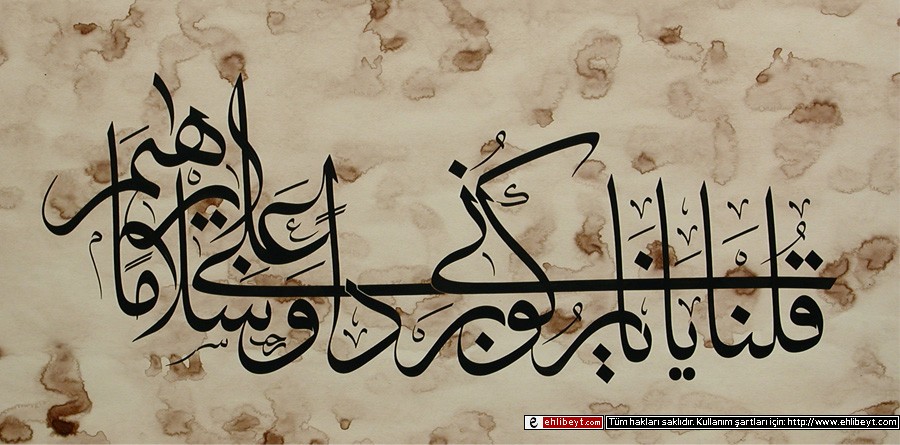 قلنا يا نار كوني بردا وسلاما على ابراهيم
ehlibeyt.com Tüm hakları saklıdır. Kullanım şartları için: http://www.ehlibeyt.com